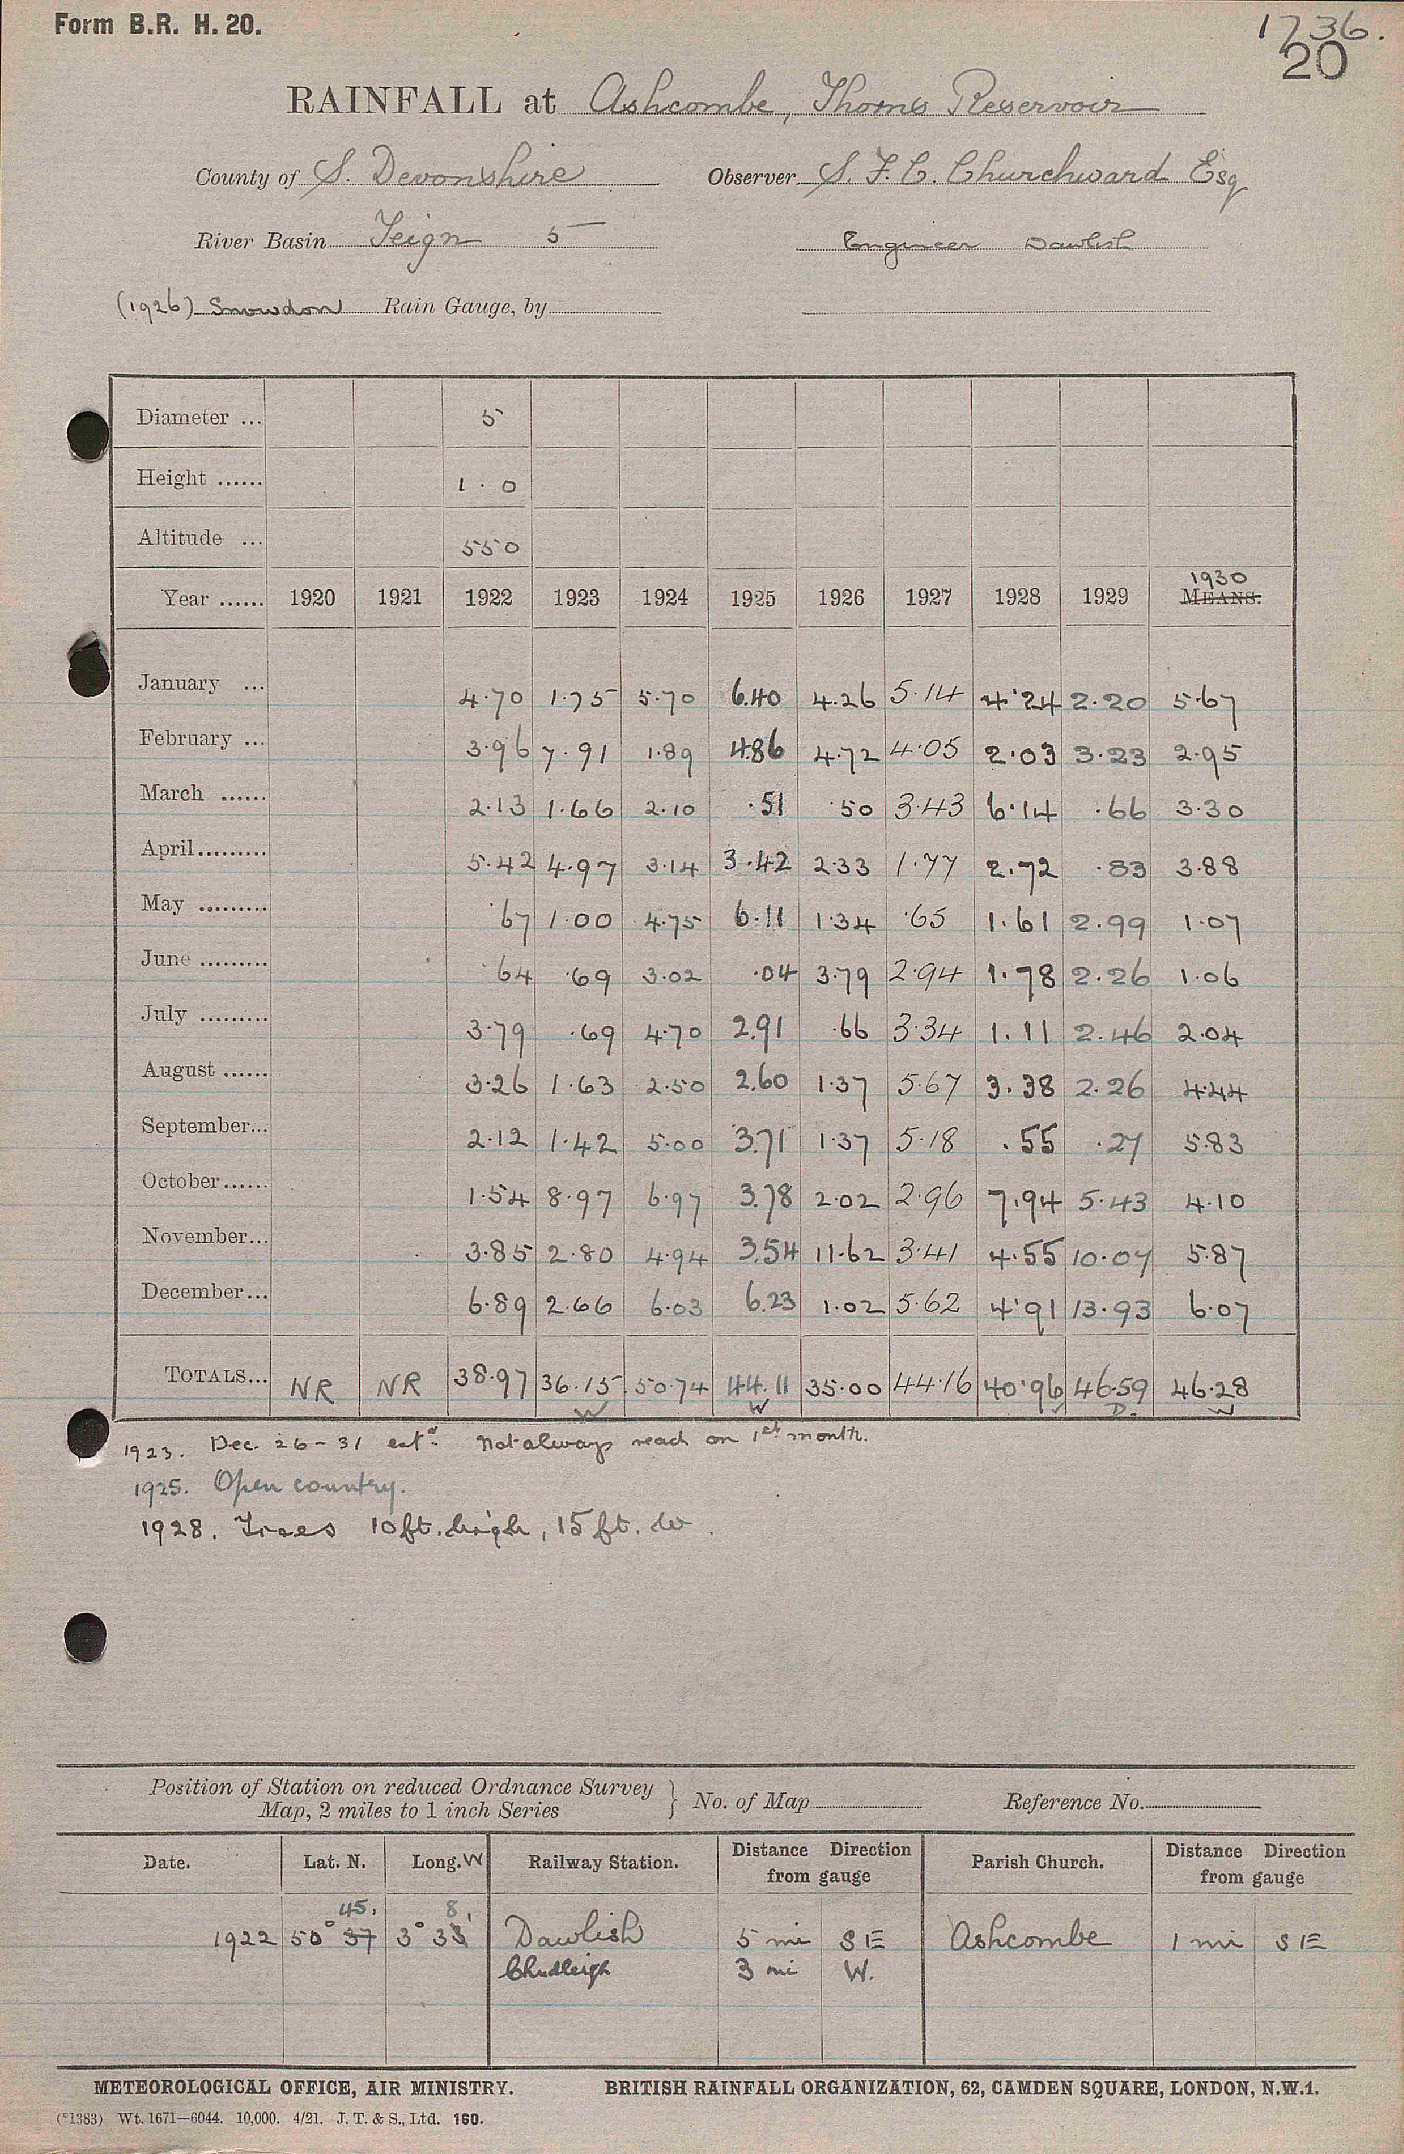 Form B.R. H. 20.
1736.
20
RAINFALL at Ashcombe, Thorns Reservoir
County of S. Devonshire Observer S. F. C. Churchward Esq
River Basin Teign 5 Engineer Dawlish
(1926) Snowdon Rain Gauge, by
Diameter ... 5
Height ...... 1 . 0
Altitude ... 550
1930
Year ...... 1920 1921 1922 1923 1924 1925 1926 1927 1928 1929 MEANS.
January ... 4.70 1.75 5.70 6.40 4.26 5.14 4.24 2.20 5.67
February ... 3.96 7.91 1.89 4.86 4.72 4.05 2.03 3.23 2.95
March ...... 2.13 1.66 2.10 .51 .50 3.43 6.14 .66 3.30
April......... 5.42 4.97 3.14 3.42 2.33 1.77 2.72 .83 3.88
May ......... .67 1.00 4.75 6.11 1.34 .65 1.61 2.99 1.07
June ......... .64 .69 3.02 .04 3.79 2.94 1.78 2.26 1.06
July ......... 3.79 .69 4.70 2.91 .66 3.34 1.11 2.46 2.04
August ...... 3.26 1.63 2.50 2.60 1.37 5.67 3.38 2.26 4.44
September... 2.12 1.42 5.00 3.71 1.37 5.18 .55 .27 5.83
October...... 1.54 8.97 6.97 3.78 2.02 2.96 7.94 5.43 4.10
November... 3.85 2.80 4.94 3.54 11.62 3.41 4.55 10.07 5.87
December... 6.89 2.66 6.03 6.23 1.02 5.62 4.91 13.93 6.07
TOTALS... NR NR 38.97 36.15 50.74 44.11 35.00 44.16 40.96 46.59 46.28
W W D. W
1923. Dec. 26-31 estd. Not always read on 1st month.
1925. Open country.
1928. Trees 10ft. high, 15 ft. W.
Position of Station on reduced Ordnance Survey
Map, 2 miles to 1 inch Series } No. of Map Reference No.
Date. Lat. N. Long. W Railway Station. Distance Direction from gauge Parish Church. Distance Direction from gauge
45. 8.
1922 50° 37 3° 33' Dawlish 5 mi SE Ashcombe 1 mi SE
Chudleigh 3 mi W.
METEOROLOGICAL OFFICE, AIR MINISTRY. BRITISH RAINFALL ORGANIZATION, 62, CAMDEN SQUARE, LONDON, N.W.1.
(*1383) Wt. 1671—6044. 10,000. 4/21. J. T. & S., Ltd. 160.